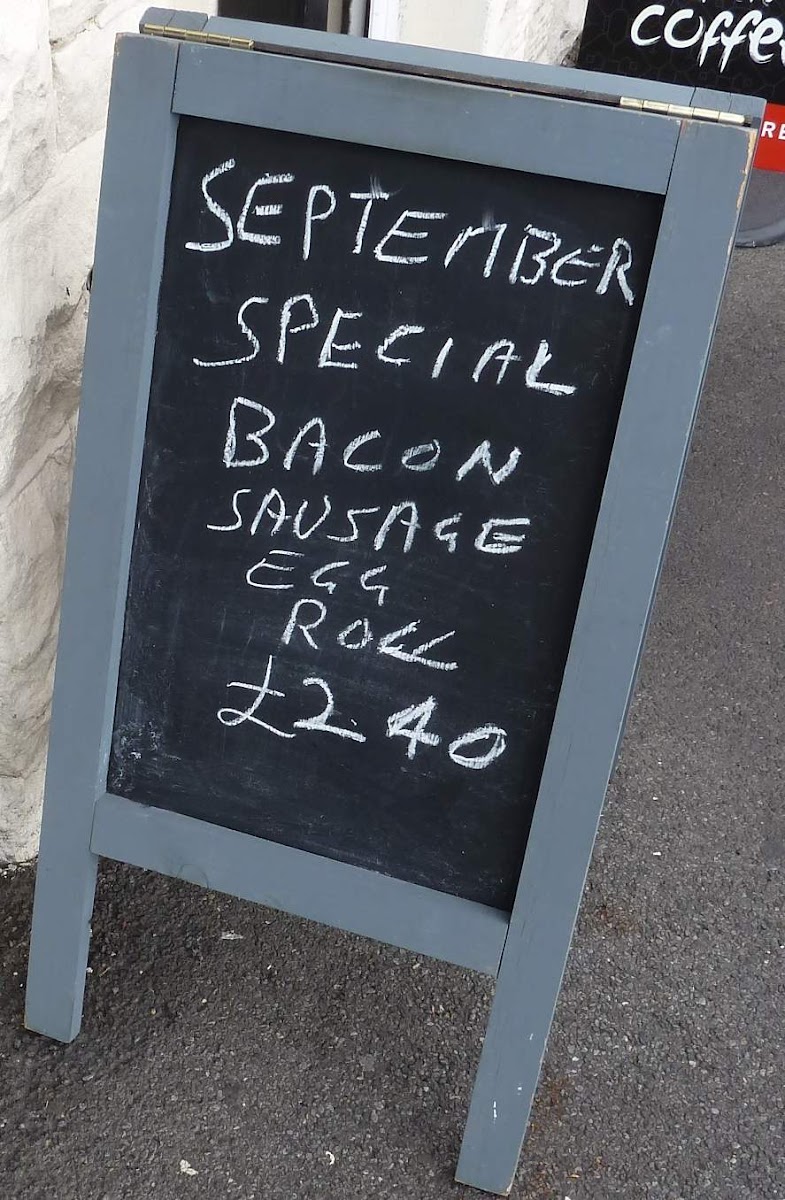 coffee
RE
SEPTEMBER
SPECIAL
BACON
SAUSAGE
EGG
ROLL
£2.40